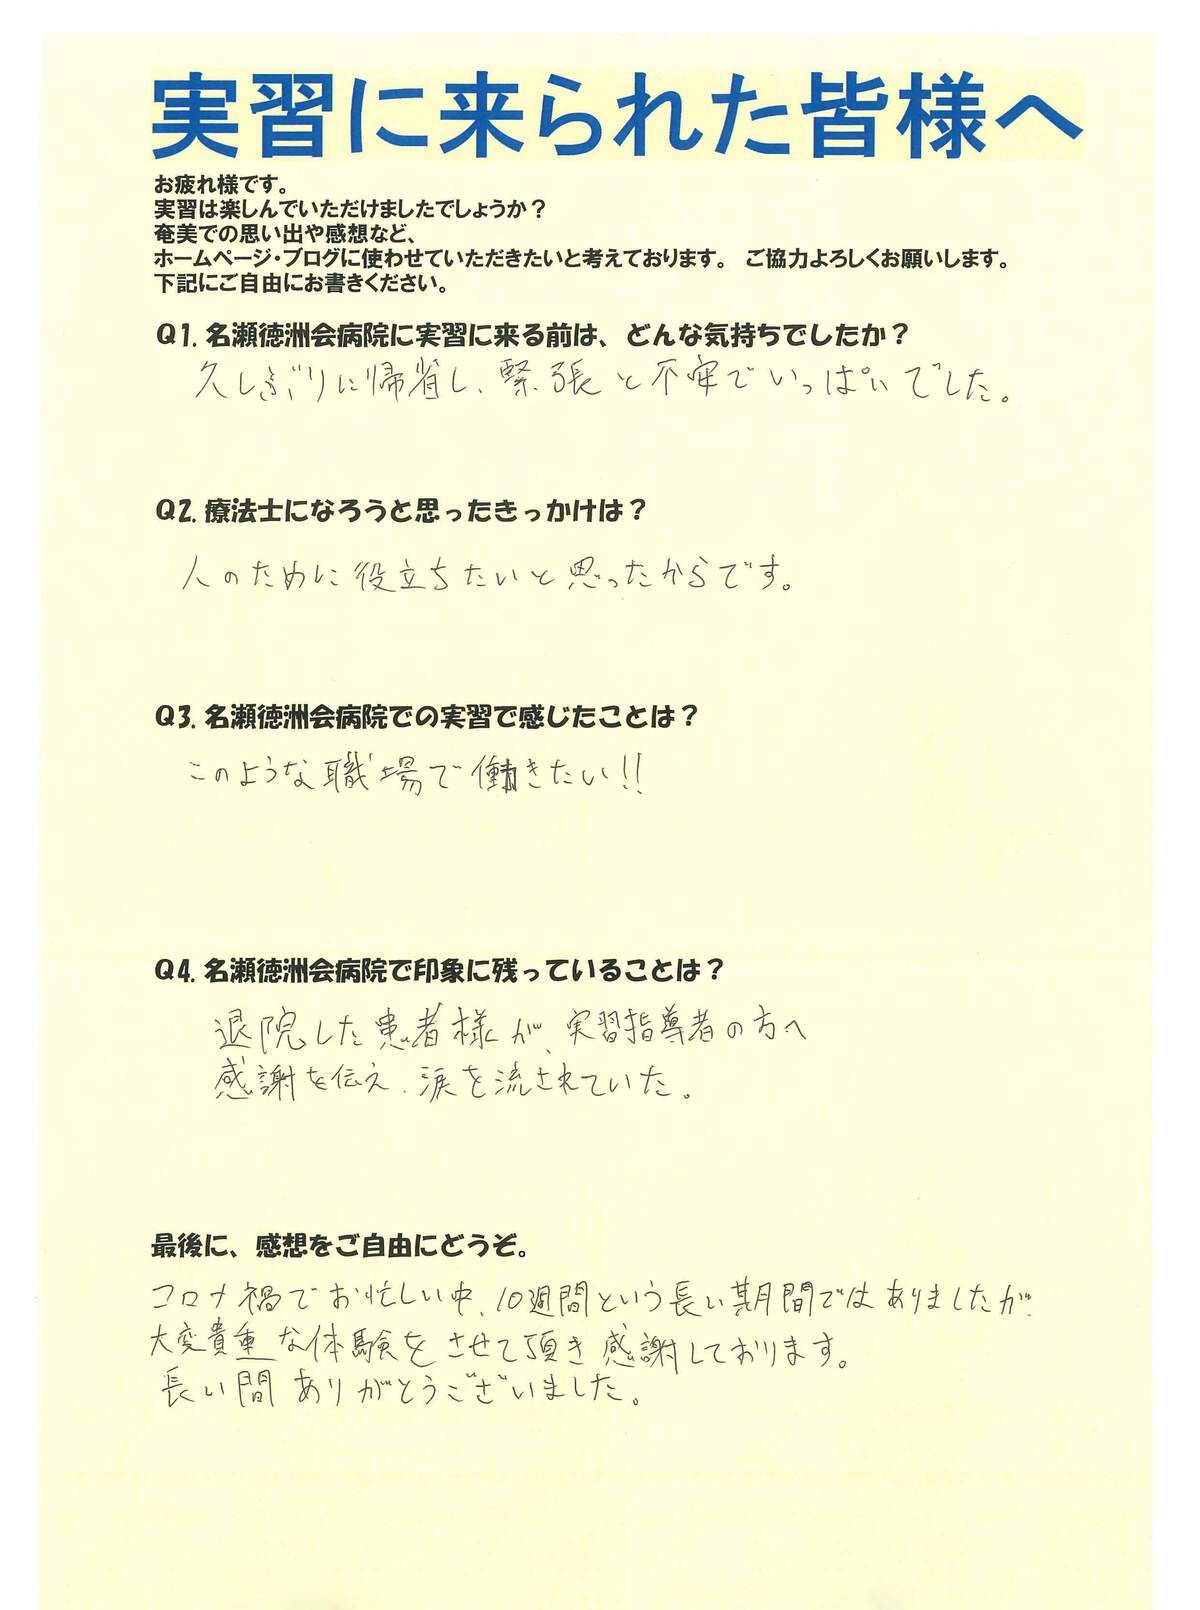 実習に来られた皆様へ
お疲れ様です。
実習は楽しんでいただけましたでしょうか？
奄美での思い出や感想など、
ホームページ・ブログに使わせていただきたいと考えております。　ご協力よろしくお願いします。
下記にご自由にお書きください。
Q1. 名瀬徳洲会病院に実習に来る前は、どんな気持ちでしたか？
久しぶりに帰省し、緊張と不安でいっぱいでした。
Q2. 療法士になろうと思ったきっかけは？
人のために役立ちたいと思ったからです。
Q3. 名瀬徳洲会病院での実習で感じたことは？
このような職場で働きたい!!
Q4. 名瀬徳洲会病院で印象に残っていることは？
退院した患者様が、実習指導者の方へ
感謝を伝え、涙を流されていた。
最後に、感想をご自由にどうぞ。
コロナ禍でお忙しい中、10週間という長い期間ではありましたが、
大変貴重な体験をさせて頂き感謝しております。
長い間ありがとうございました。